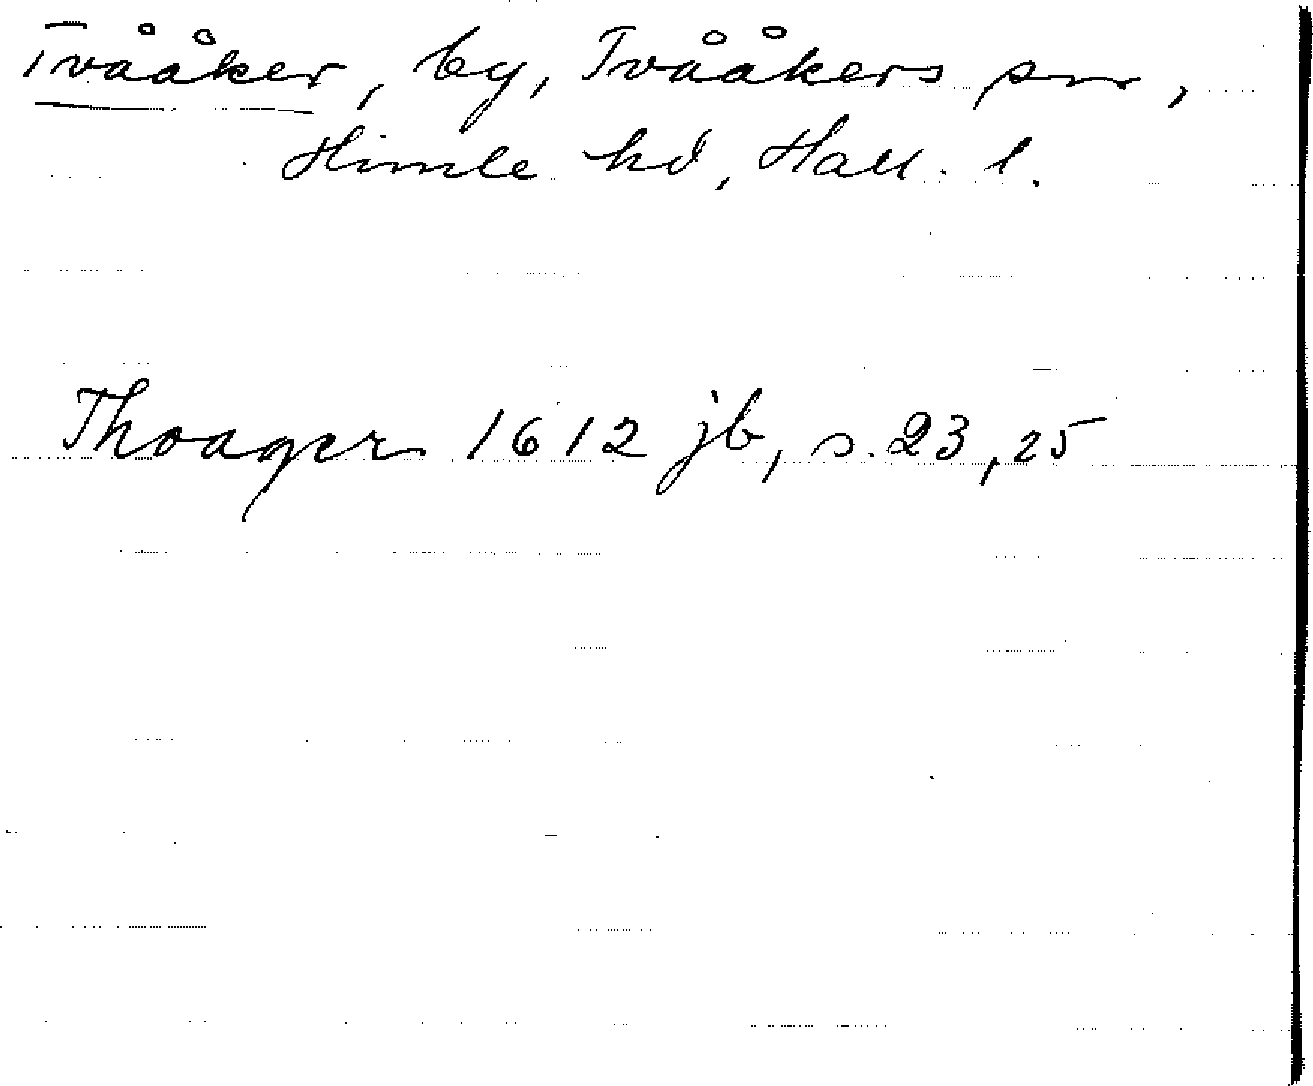 Tvååker, by, Tvååkers sn,
Himle hd, Hall. l.
Thoager 1612 jb, s. 23, 25